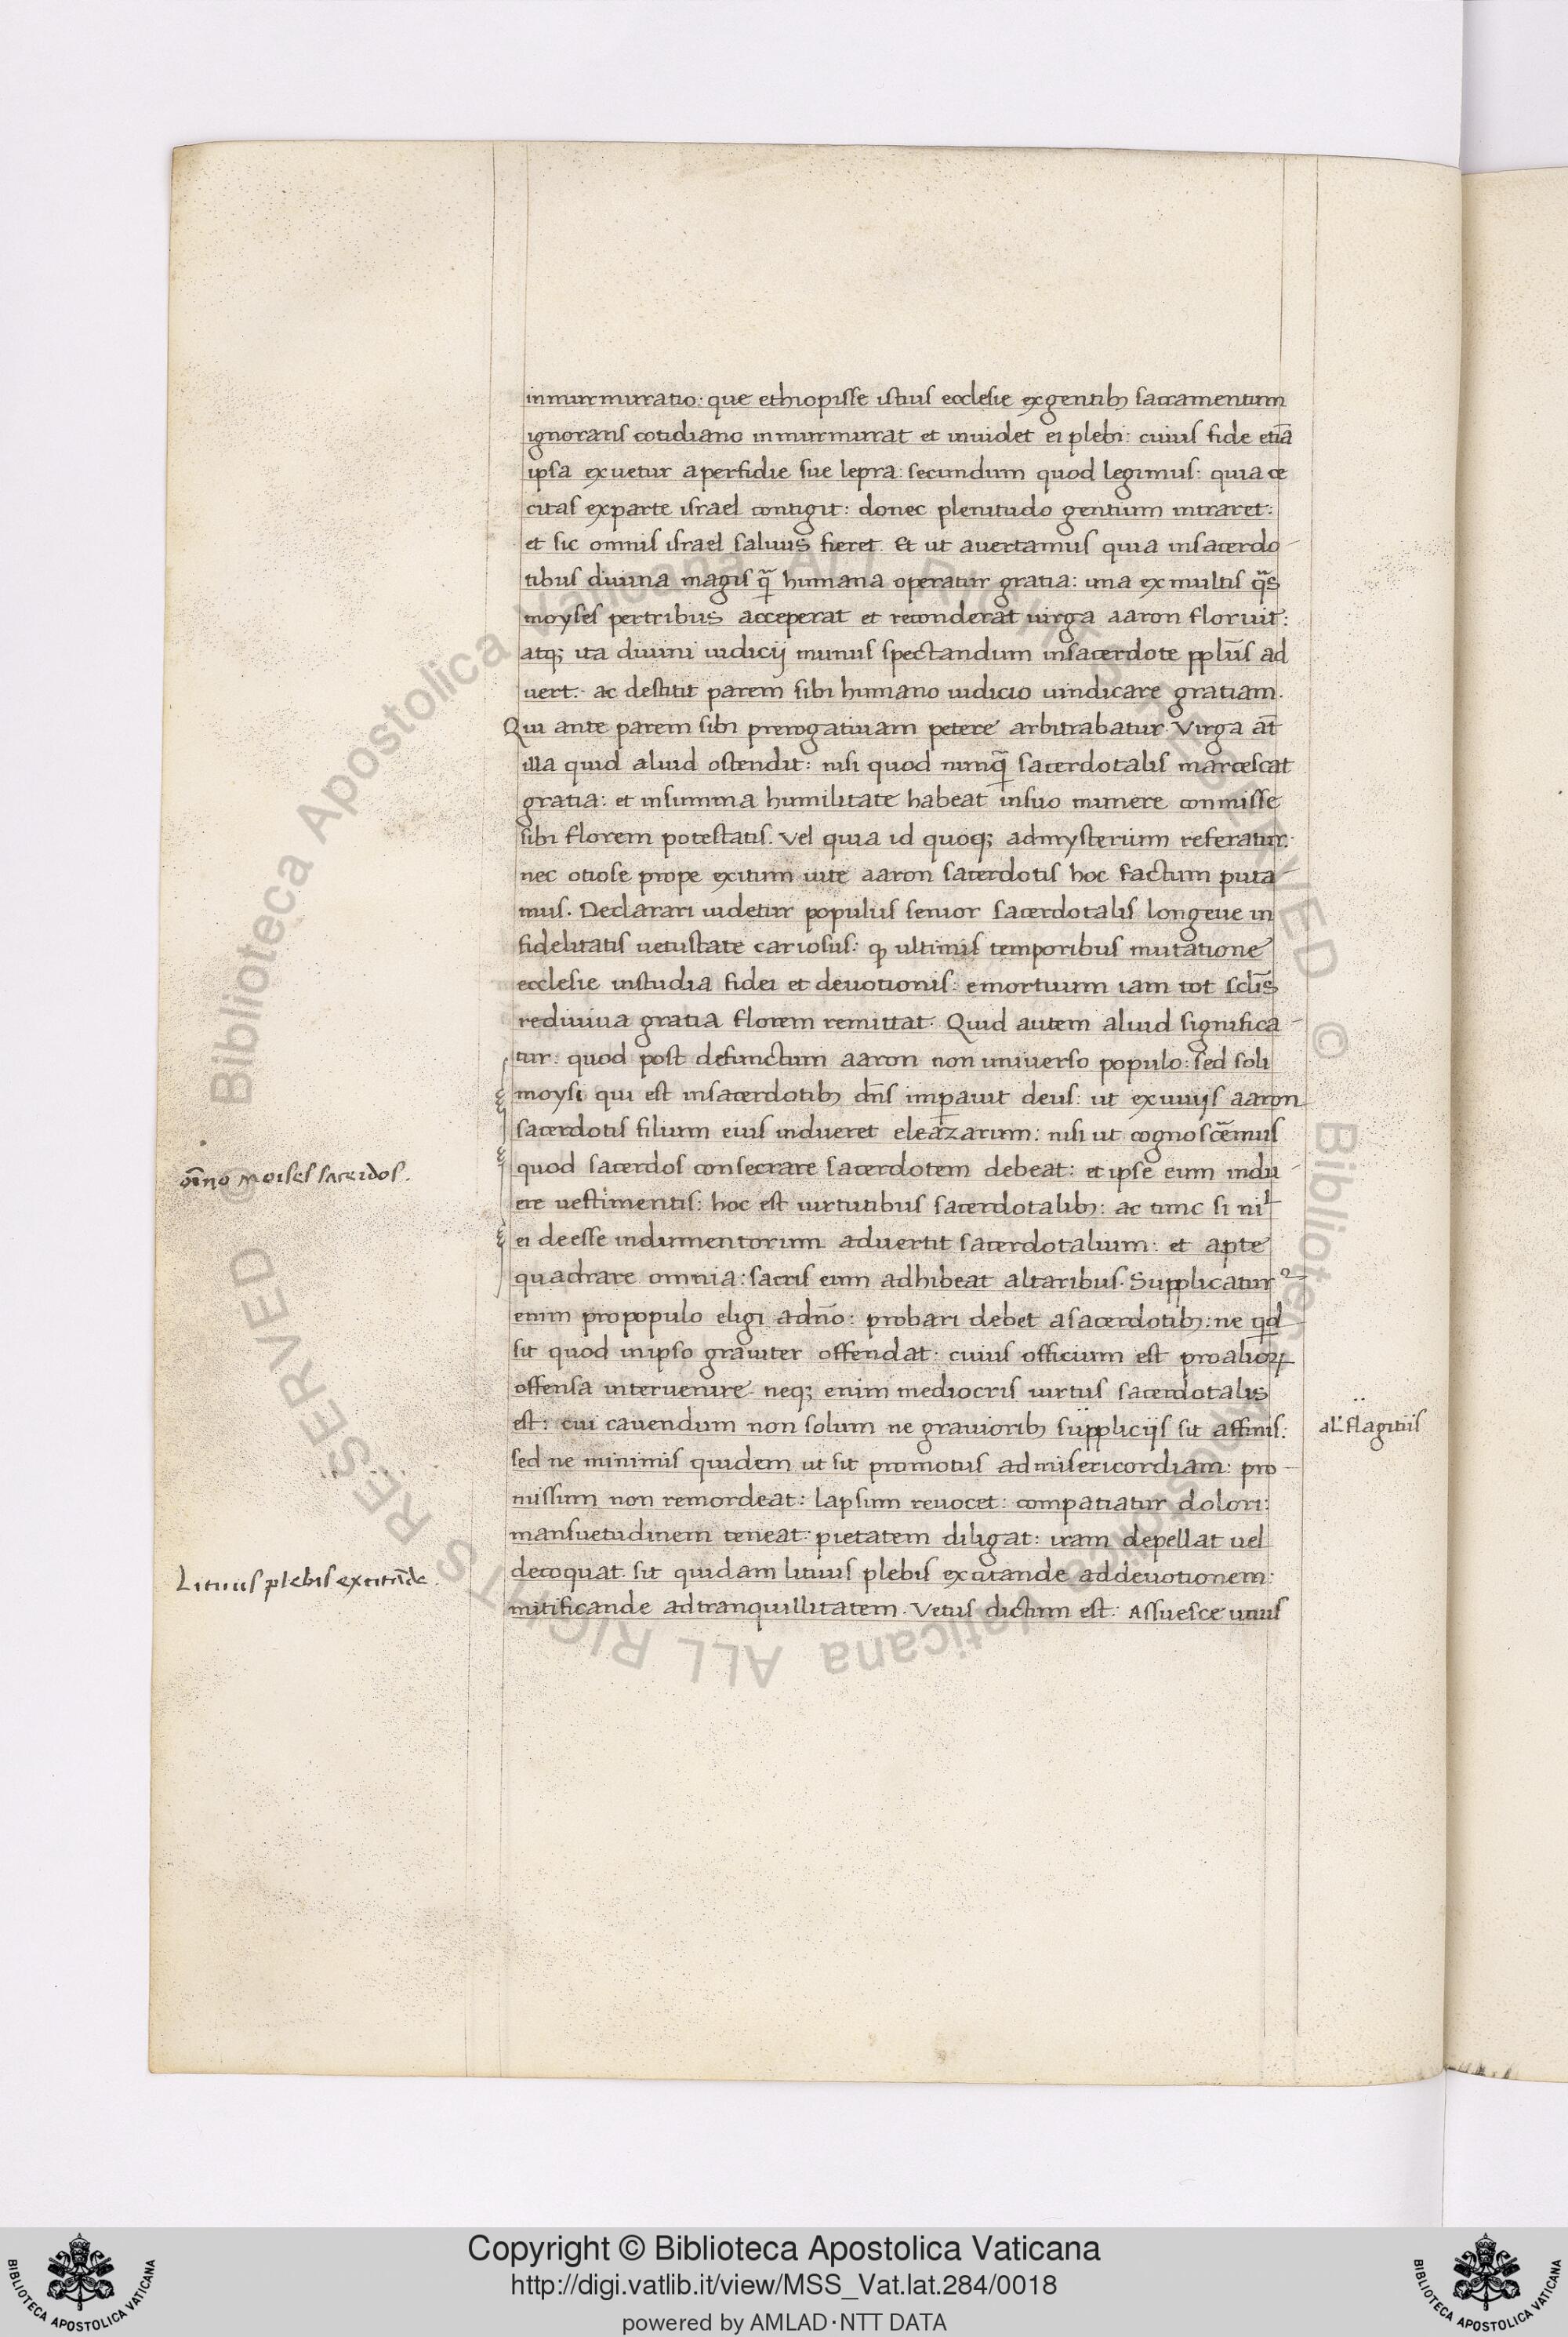 inmurmuratio: que ethiopisse istius ecclesie exgentibꝫ sacramentum
ignorans cotidiano inmurmurat et inuidet ei plebi: cuius fide etiā
ipsa exuetur aperfidie sue lepra: secundum quod legimus: quia ce
citas exparte israel contigit: donec plenitudo gentium intraret:
et sic omnis israel saluus fieret. Et ut auertamus quia insacerdo-
tibus diuina magis q̄ humana operatur gratia: una exmultis q̄s
moyses pertribus acceperat et reconderat uirga aaron floruit:
atqꝫ ita diuini iudicij munus spectandum insacerdote pplūs ad
uert. ac destitit parem sibi humano iudicio uindicare gratiam.
Qui ante parem sibi prerogatiuam petere arbitrabatur. Virga āt
illa quid aliud ostendit: nisi quod nunq̄ sacerdotalis marcescat
gratia: et insumma humilitate habeat insuo munere conmisse
sibi florem potestatis. Vel quia id quoqꝫ admysterium referatur.
nec otiose prope exitum uite aaron sacerdotis hoc factum puta-
mus. Declarari uidetur populus senior sacerdotalis longeue in
fidelitatis uetustate cariosus: ꝙ ultimis temporibus mutatione
ecclesie instudia fidei et deuotionis: emortuum iam tot sclīs
rediuiua gratia florem remittat. Quid autem aliud significa-
tur: quod post defunctum aaron non uniuerso populo: sed soli
moysi qui est insacerdotibꝫ dn̄s imꝑauit deus: ut exuuijs aaron
sacerdotis filium eius indueret eleazarum: nisi ut cognoscēmus
quod sacerdos consecrare sacerdotem debeat: et ipse eum indu-
ere uestimentis: hoc est uirtutibus sacerdotalibꝫ: ac tunc si nil
ei deesse indumentorum aduertit sacerdotalium: et apte
quadrare omnia: sacris eum adhibeat altaribus. Supplicatur
enim propopulo eligi adn̄o: probari debet asacerdotibꝫ: ne qd
sit quod inipso grauiter offendat: cuius officium est proalioꝝ
offensa interuenire. neqꝫ enim mediocris uirtus sacerdotalis
est: cui cauendum non solum ne grauioribꝫ suppliciijs sit affinis:
sed ne minimis quidem ut sit promotus admisericordiam: pro-
missum non remordeat: lapsum reuocet: compatiatur dolori:
mansuetudinem teneat: pietatem diligat: iram depellat uel
decoquat. sit quidam lituus plebis excitande addeuotionem:
mitificande adtranquillitatem. Vetus dictum est: Assuesce unus
oīno moises sacerdos.
al' flagitiis
Lituus plebis excitāde.
Copyright © Biblioteca Apostolica Vaticana
http://digi.vatlib.it/view/MSS_Vat.lat.284/0018
powered by AMLAD·NTT DATA
BIBLIOTECA APOSTOLICA VATICANA
BIBLIOTECA APOSTOLICA VATICANA
© Biblioteca Apostolica Vaticana ALL RIGHTS RESERVED © Biblioteca Apostolica Vaticana ALL RIGHTS RESERVED